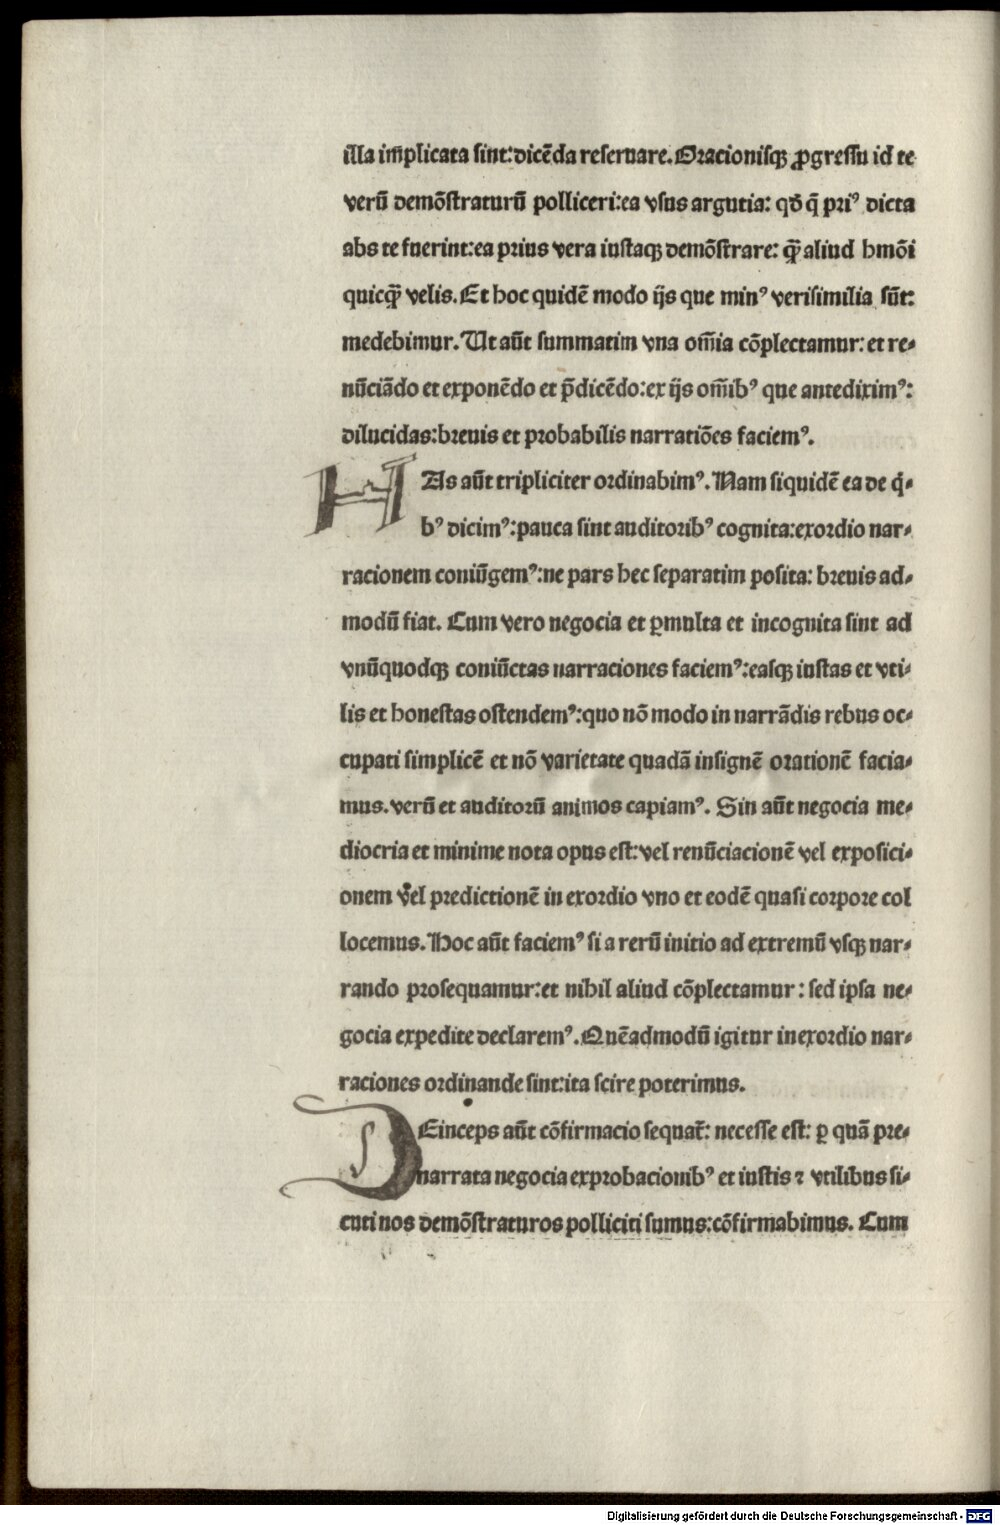 illa im̄plicata sint:dicēda reseruare.Oracionisqꝫ ꝓgressu id te
verū demōstraturū polliceri:ea vsus argutia: qd̄ q̄ priꝰ dicta
abs te fuerint:ea prius vera iustaqꝫ demōstrare: qꝫ̄ aliud hmōi
quicqꝫ̄ velis.Et hoc quidē modo ijs que minꝰ verisimilia sūt:
medebimur.Ut aūt summatim vna om̄ia cōplectamur: et re⸗
nūciādo et exponēdo et p̄dicēdo:ex ijs om̄ibꝰ que antediximꝰ:
dilucidas:breuis et probabilis narratiōes faciemꝰ.
HAs aūt tripliciter ordinabimꝰ.Nam siquidē ea de q̇⸗
bꝰ dicimꝰ:pauca sint auditoribꝰ cognita:exordio nar⸗
racionem coniūgemꝰ:ne pars hec separatim posita: breuis ad⸗
modū fiat. Cum vero negocia et ꝑmulta et incognita sint ad
vnūquodqꝫ coniūctas narraciones faciemꝰ:easqꝫ iustas et vti⸗
lis et honestas ostendemꝰ:quo nō modo in narrādis rebus oc⸗
cupati simplicē et nō varietate quadā insignē orationē facia⸗
mus.verū et auditorū animos capiamꝰ. Sin aūt negocia me⸗
diocria et minime nota opus est:vel renūciacionē vel exposici⸗
onem vel predictionē in exordio vno et eodē quasi corpore col
locemus.Hoc aūt faciemꝰ si a rerū initio ad extremū vsqꝫ nar⸗
rando prosequamur:et nihil aliud cōplectamur: sed ipsa ne⸗
gocia expedite declaremꝰ.Quēadmodū igitur in exordio nar⸗
raciones ordinande sint:ita scire poterimus.
DEinceps aūt cōfirmacio sequat̄: necesse est: ꝑ quā pre⸗
narrata negocia exprobacionibꝰ et iustis ⁊ vtilibus si⸗
cuti nos demōstraturos polliciti sumus:cōfirmabimus. Cum
Digitalisierung gefördert durch die Deutsche Forschungsgemeinschaft - DFG